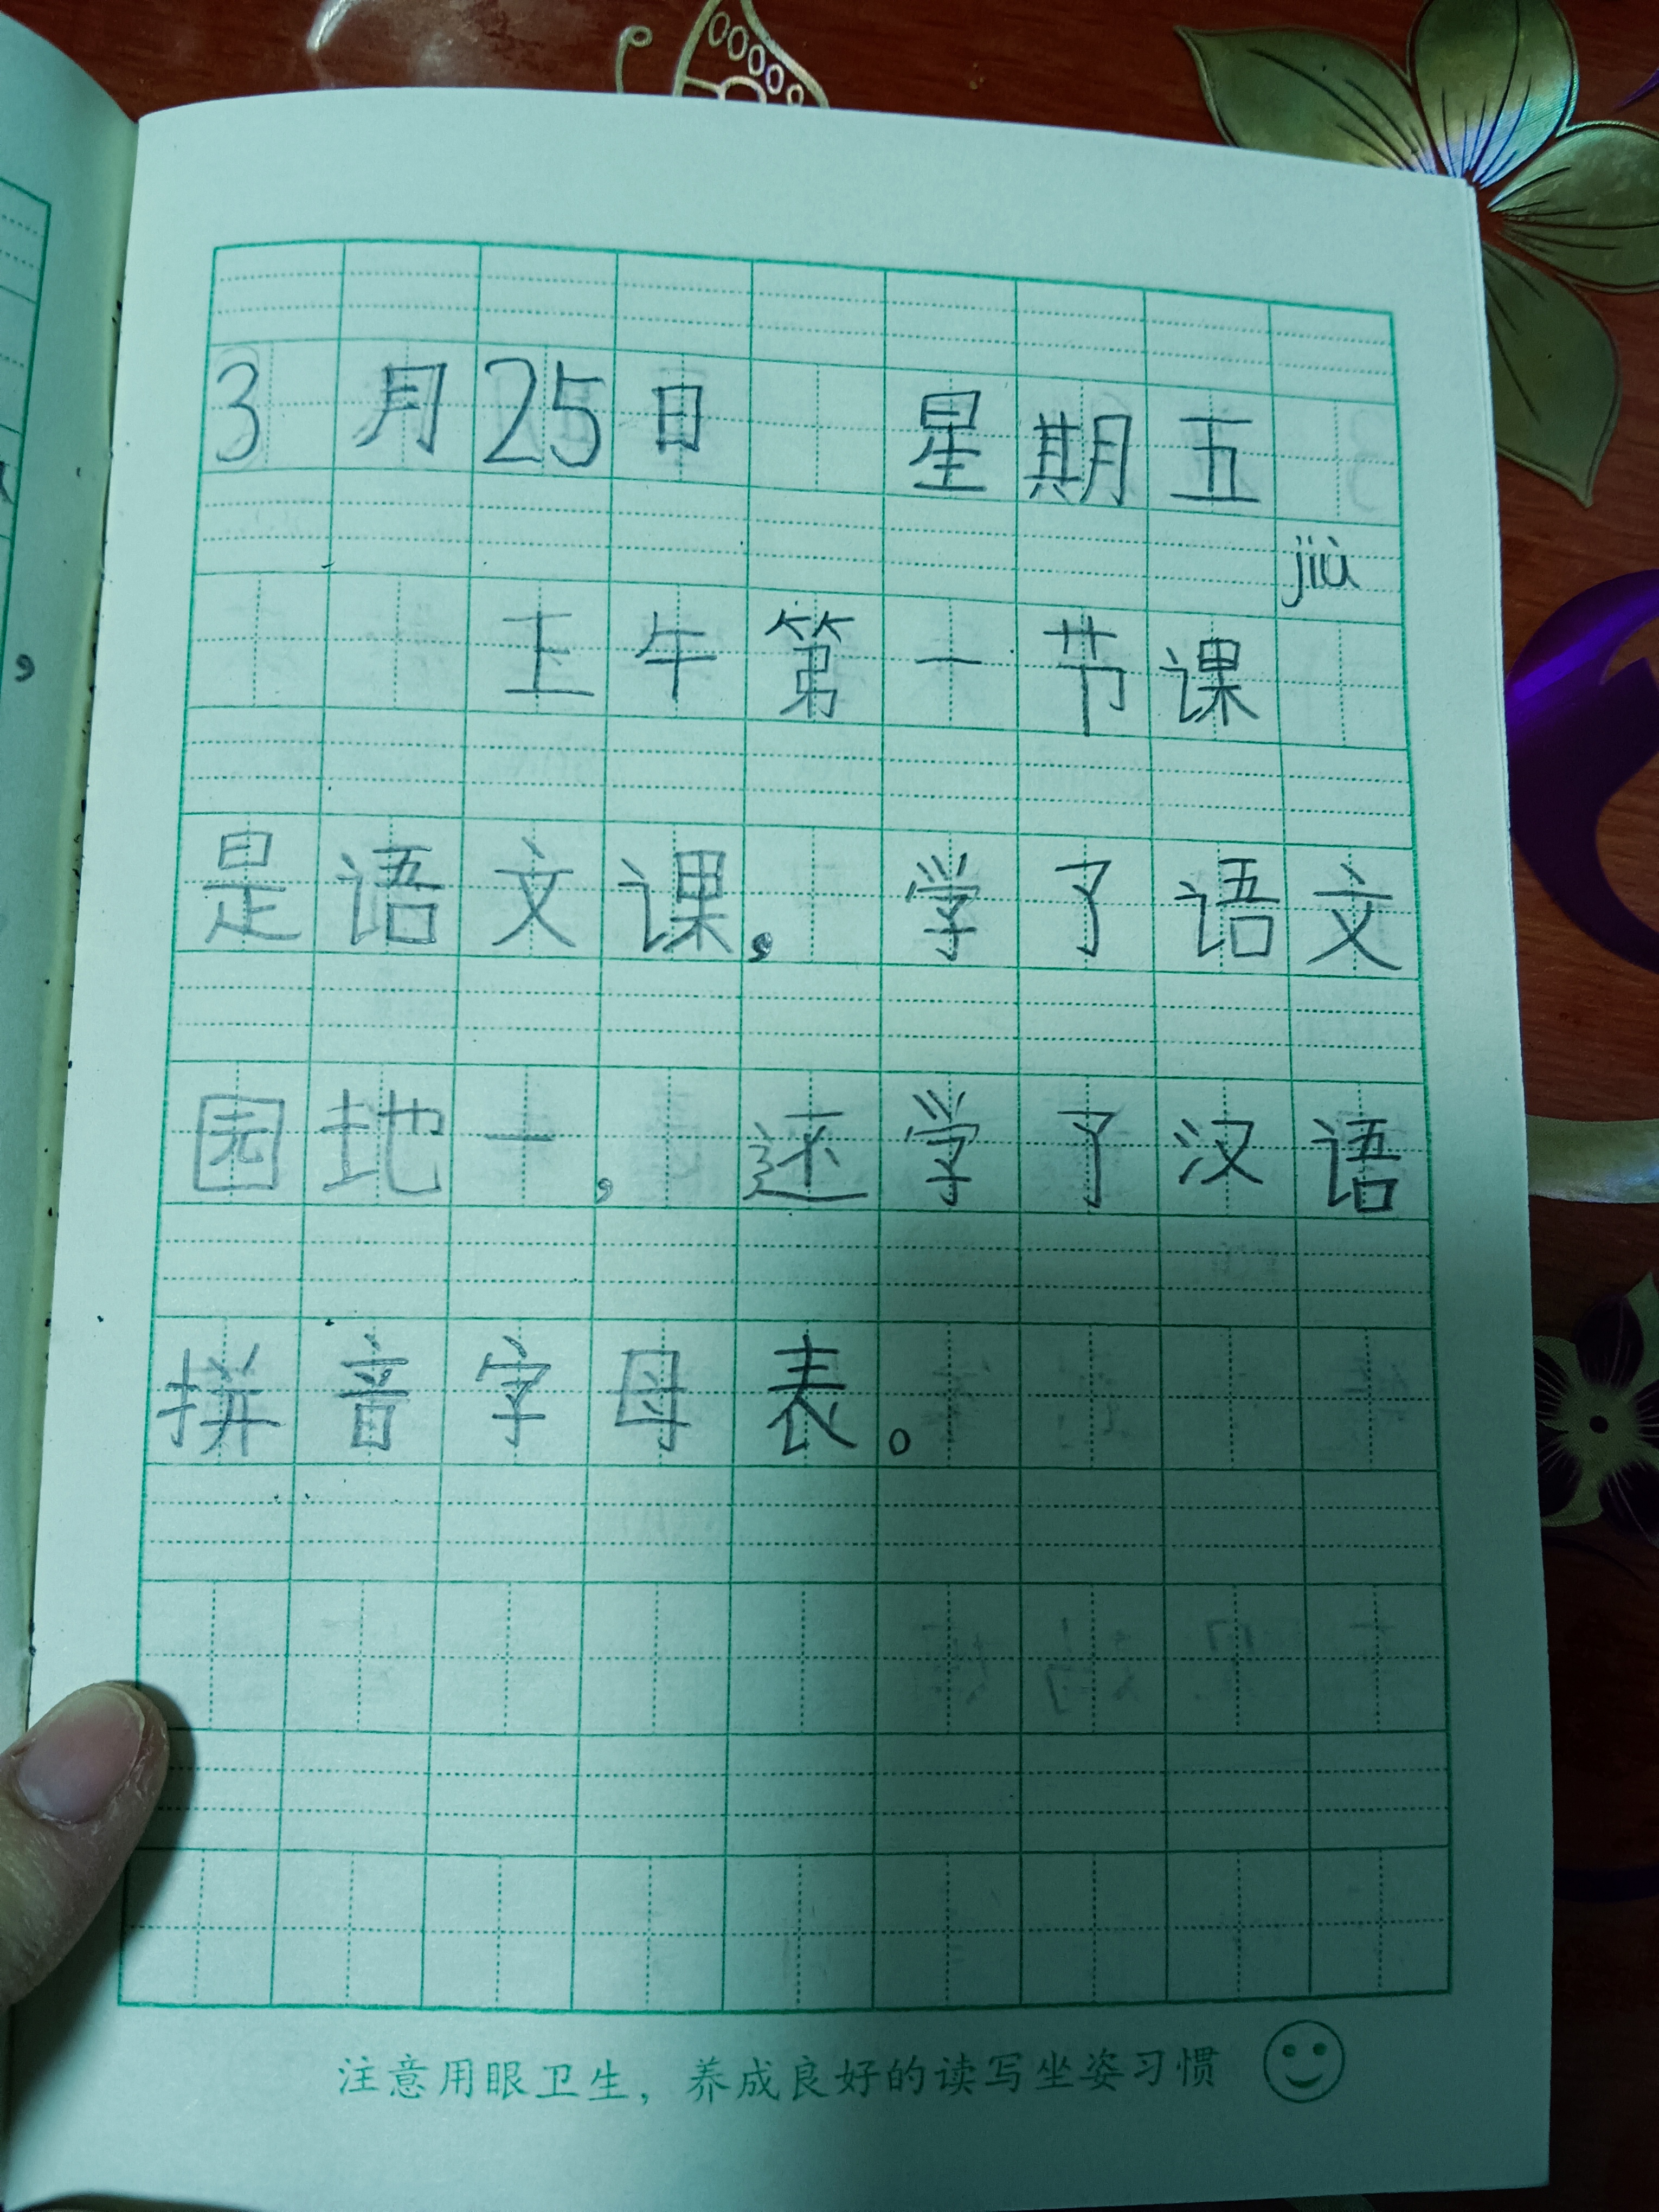 3月25日 星期五
jiù
上午第一节课
是语文课，学了语文
园地一，还学了汉语
拼音字母表。
注意用眼卫生，养成良好的读写坐姿习惯